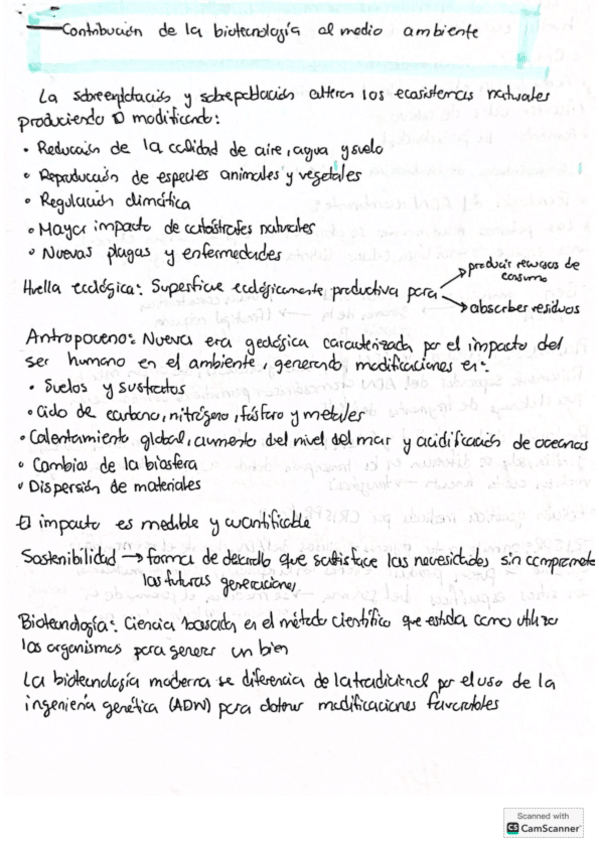 Contribución de la biotecnología al medio ambiente
La sobreexplotación y sobrepoblación alteran los ecosistemas naturales
produciendo o modificando:
• Reducción de la calidad de aire, agua y suelo
• Reproducción de especies animales y vegetales
• Regulación climática
• Mayor impacto de catástrofes naturales
• Nuevas plagas y enfermedades
Huella ecológica: Superficie ecológicamente productiva para
producir recursos de
consumo
absorber residuos
Antropoceno: Nueva era geológica caracterizada por el impacto del
ser humano en el ambiente, generando modificaciones en:
• Suelos y sustratos
• Ciclo de carbono, nitrógeno, fósforo y metales
• Calentamiento global, aumento del nivel del mar y acidificación de oceanos
• Cambios de la biosfera
• Dispersión de materiales
El impacto es medible y cuantificable
Sostenibilidad → forma de desarrollo que satisface las necesidades sin compromete
las futuras generaciones
Biotecnología: Ciencia basada en el método científico que estudia como utilizar
los organismos para generar un bien
La biotecnología moderna se diferencia de la tradicional por el uso de la
ingeniería genética (ADN) para obtener modificaciones favorables
Scanned with
CS CamScanner